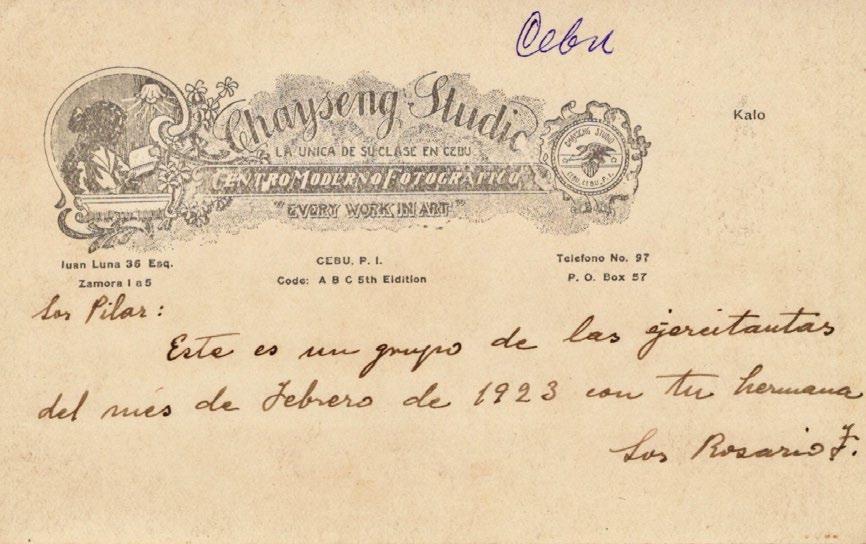 Cebu
Chayseng Studio
LA UNICA DE SU CLASE EN CEBU
CENTRO MODERNO FOTOGRAFICO
"EVERY WORK IN ART"
CHAYSENG STUDIO
CEBU, CEBU, P. I.
Kalo
Iuan Luna 36 Esq.
Zamora 1 a 5
CEBU, P. I.
Code: A B C 5th Eidition
Telefono No. 97
P. O. Box 57
Sor Pilar:
Este es un grupo de las ejercitantas
del més de Febrero de 1923 con tu hermana
Sor Rosario F.